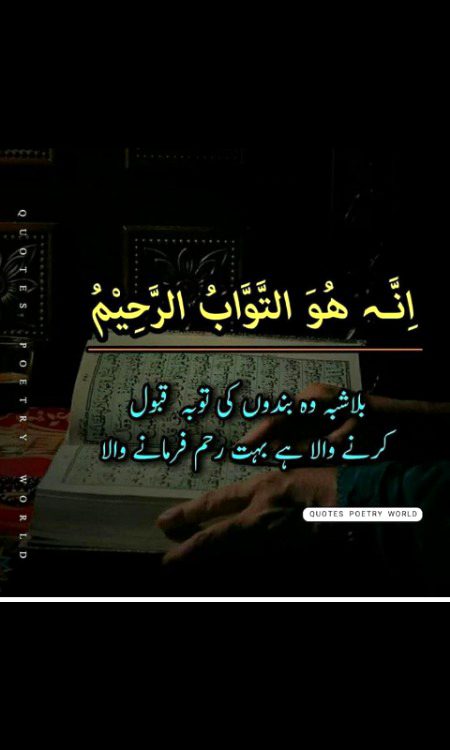 اِنَّہ هُوَ التَّوَّابُ الرَّحِيْمُ
بلاشبہ وہ بندوں کی توبہ قبول
کرنے والا ہے بہت رحم فرمانے والا
QUOTES POETRY WORLD
QUOTES POETRY WORLD